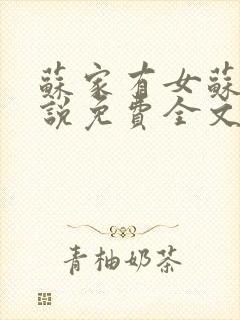 蘇家有女蘇
說免費全文
青柚奶茶